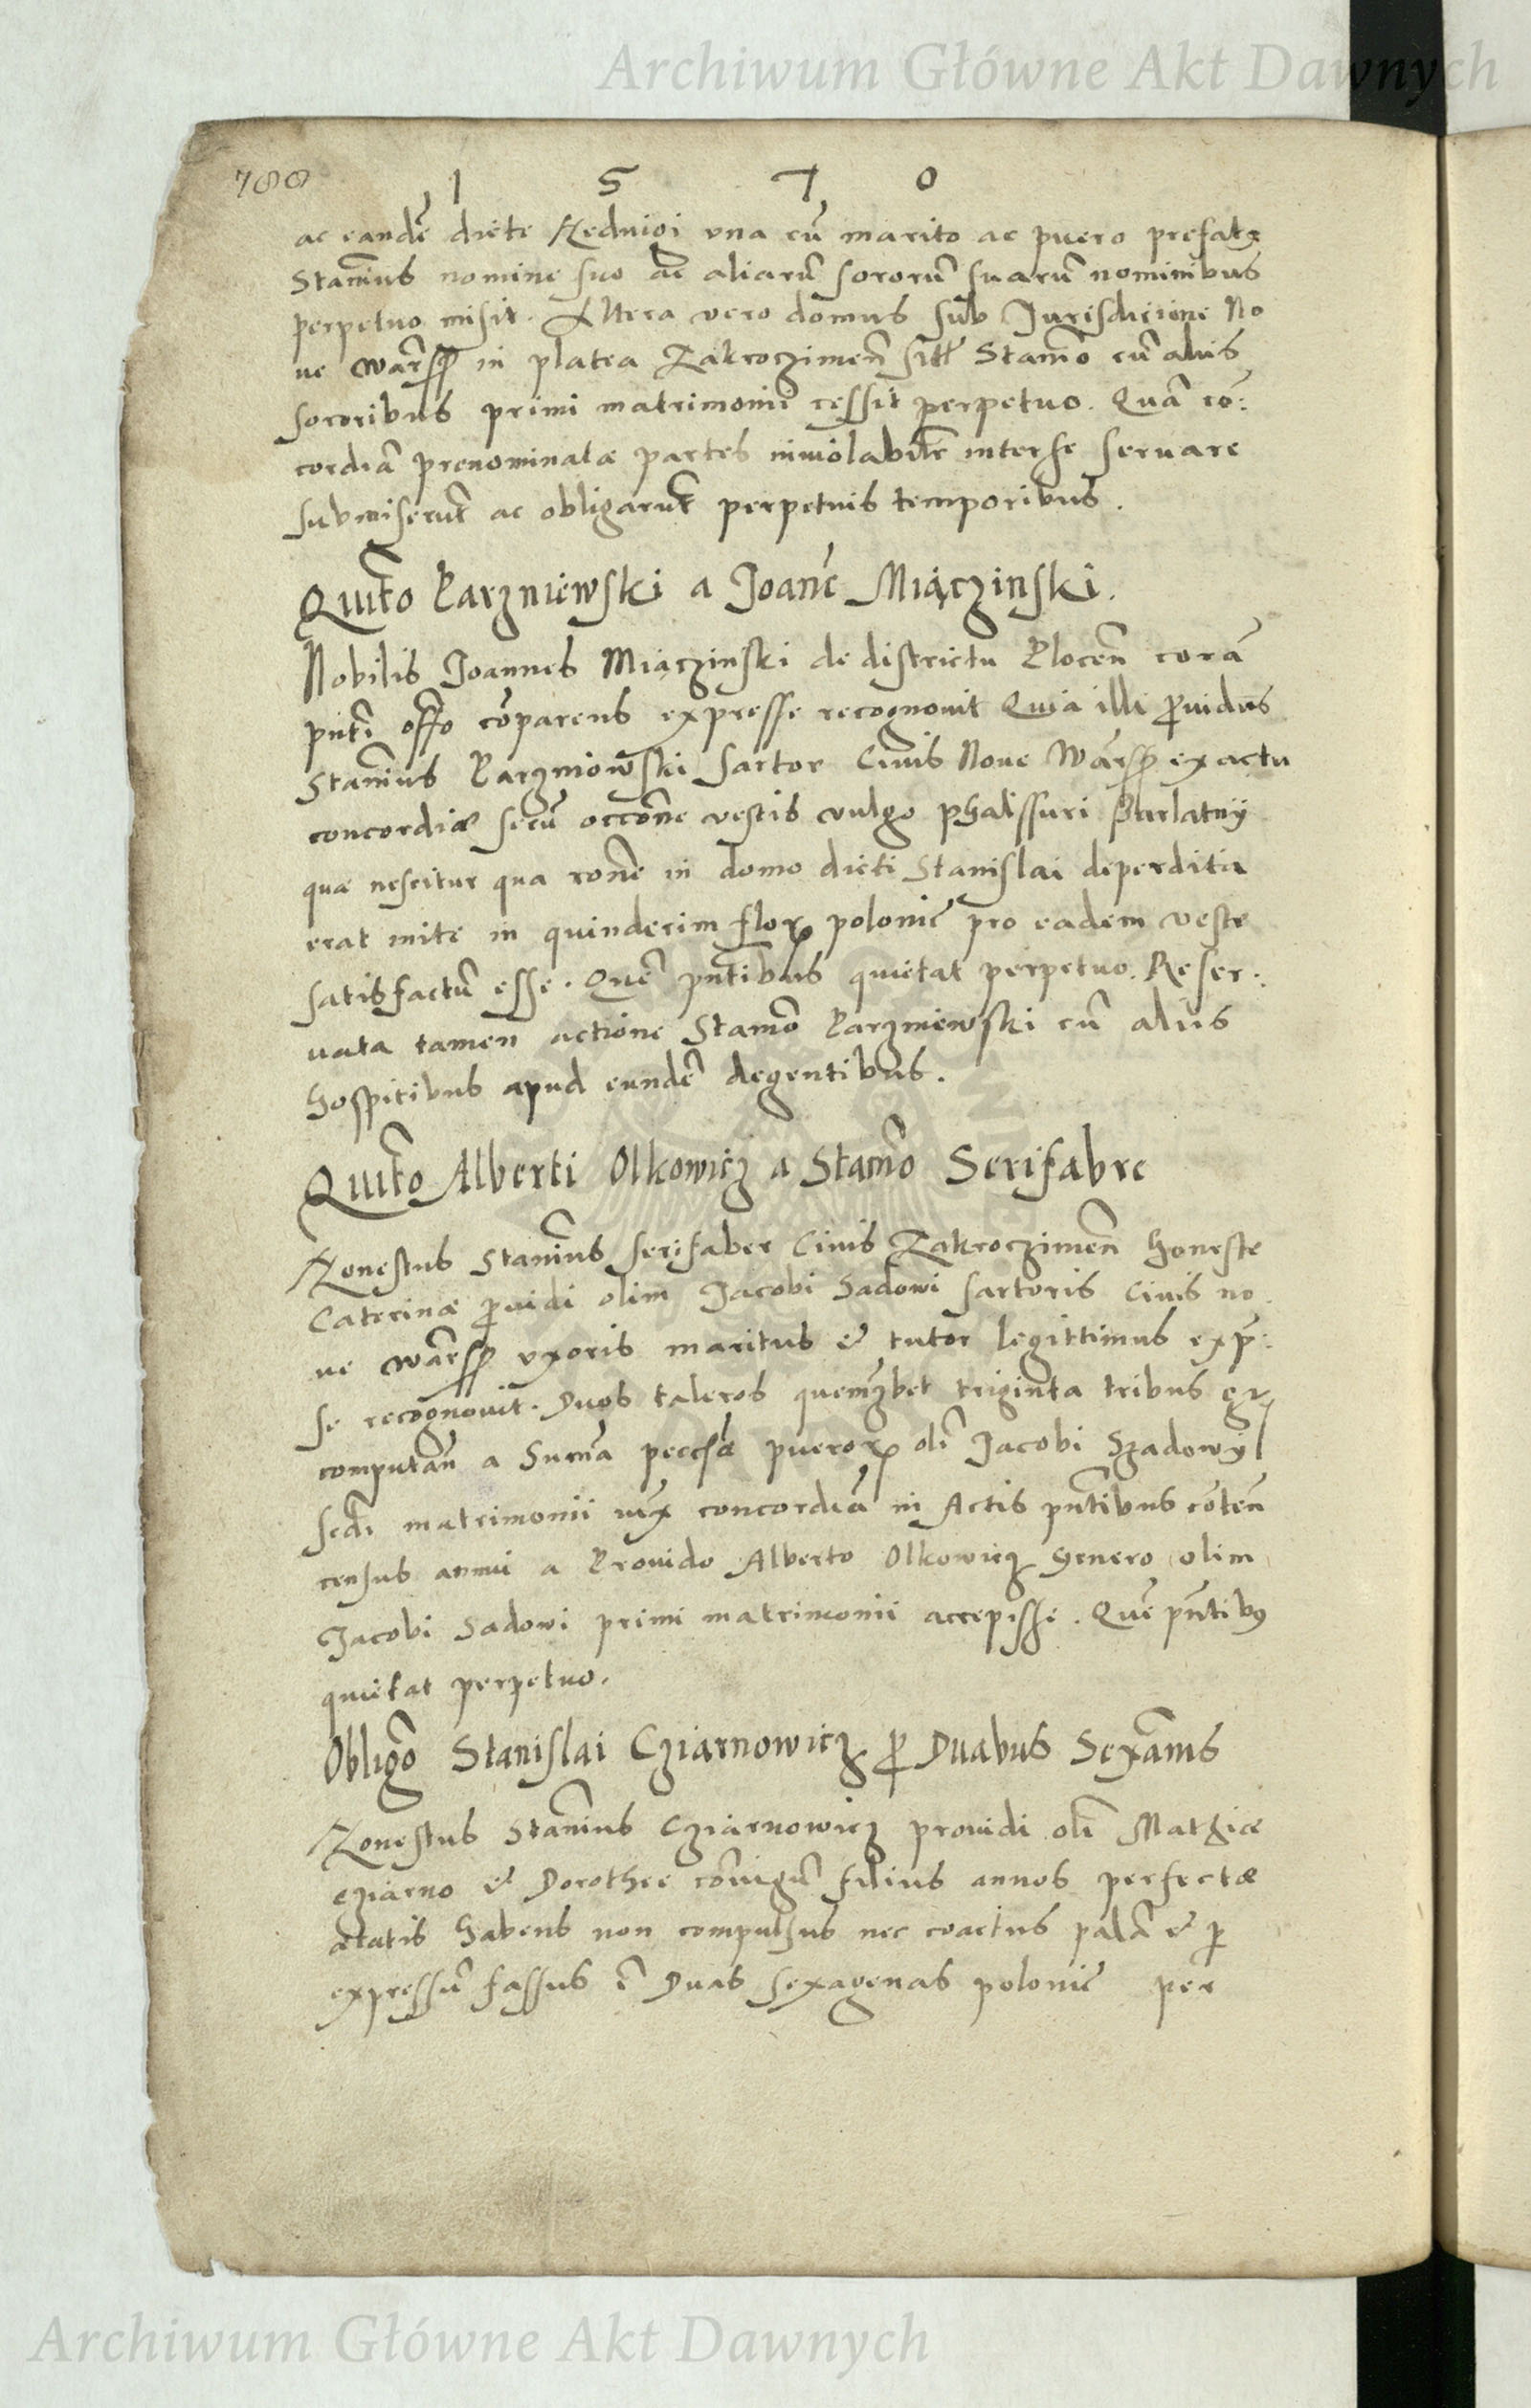 Archiwum Główne Akt Dawnych
788 1 5 7 0
ac eandē dicte Hedvigi una cū marito ac puero prefatę
Stanīus nomine suo ac aliarū sororū suarū nominibus
perpetuo misit. Altera vero domus sub Jurisdicione No
ue Warss in platea Zakroczimen̄ Stanīo cū aliis
sororibus primi matrimonii cessit perpetuo. Quā cō:
cordiā prenominatæ partes inviolabilr̄ inter se seruare
submiserūt ac obligarūt perpetuis temporibus.
Quitō Parzniewski a Joanē Miączinski.
Nobilis Joannes Miączinski de districtu Plocen̄ corā
pn̄ti offō cōparens expresse recognovit Quia illi p̄uidus
Stanīus Parzniowski sartor Ciuis Noue Warss ex actu
concordiæ secū occōne vestis vulgo phalssuri
quæ nescitur qua rōne in domo dicti Stanislai deperdita
erat mite in quindecim flor polonic̄ pro eadem veste
satisfactū esse. Quē pn̄tibus quietat perpetuo. Reser:
uata tamen actione Stanīo Parzniewski cū aliis
hospitibus apud eundē degentibus.
Quitō Alberti Olkowicz a Stanīo Serifabre
Honestus Stanīus serifaber Ciuis Zakroczimen̄ honeste
Caterinæ p̄uidi olim Jacobi Sadowi sartoris Ciuis no
ue Warss uxoris maritus & tutor legittimus exp̄:
se recognouit. Duos taleros quemlzbet triginta tribus gr
computan̄ a Sum̄a pueror olī Jacobi Szadowÿ
scdī matrimonii iux̄ concordiā in Actis pn̄tibus cōten̄
census annui a Prouido Alberto Olkowicz genero olim
Jacobi Sadowi primi matrimonii accepisse. Quē pn̄tibꝰ
quietat perpetuo.
Obligō Stanislai Cziarnowicz p̄ Duabus Sexānis
Honestus Stanīus Cziarnowicz prouidi olī Mathiæ
cziarno & Dorothee cōiugū filius annos perfectæ
ætatis habens non compulsus nec coactus palā & p̄
expressū fassus ē Duas sexagenas polonic̄ per
Archiwum Główne Akt Dawnych